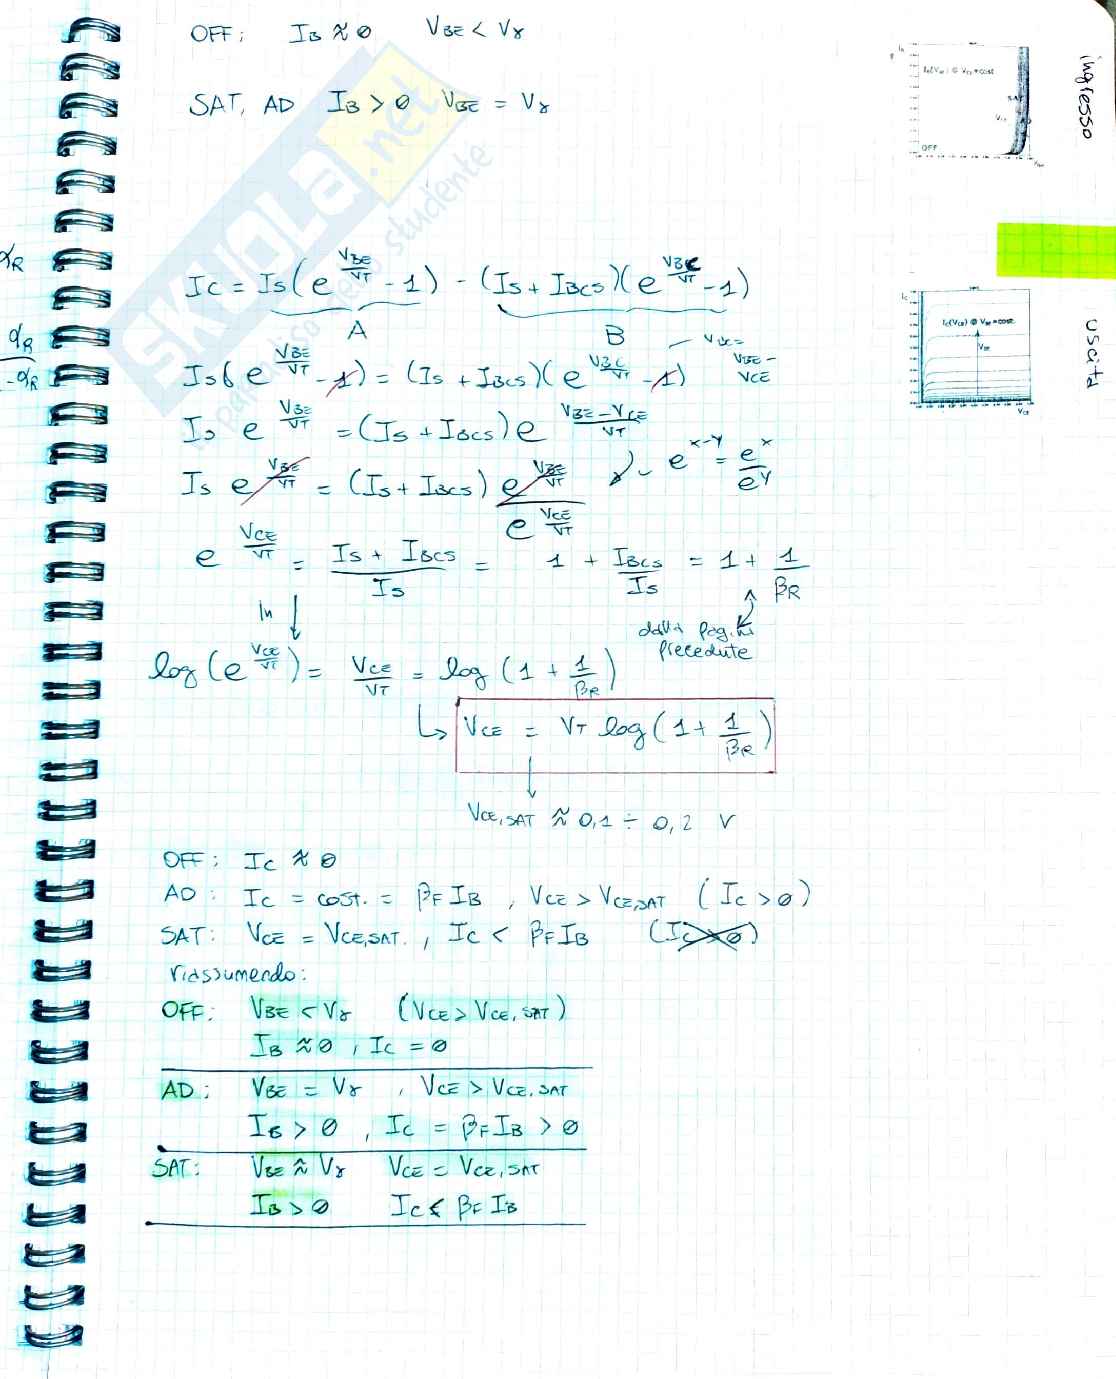 OFF: I_B ≈ 0 V_BE < V_γ
SAT, AD I_B > 0 V_BE = V_γ
I_C = I_S (e^{V_BE/V_T} - 1) - (I_S + I_BCS)(e^{V_BC/V_T} - 1)
A B
I_S (e^{V_BE/V_T} - 1) = (I_S + I_BCS)(e^{V_BC/V_T} - 1) - V_BC = V_BE - V_CE
I_S e^{V_BE/V_T} = (I_S + I_BCS) e^{(V_BE - V_CE)/V_T}
I_S e^{V_BE/V_T} = (I_S + I_BCS) e^{V_BE/V_T} / e^{V_CE/V_T} e^{x-y} = e^x / e^y
e^{V_CE/V_T} = (I_S + I_BCS)/I_S = 1 + I_BCS/I_S = 1 + 1/β_R
ln
dalla pag.
precedute
log(e^{V_CE/V_T}) = V_CE/V_T = log(1 + 1/β_R)
↳ V_CE = V_T log(1 + 1/β_R)
V_CE,SAT ≈ 0,1 ÷ 0,2 V
OFF: I_C ≈ 0
AD: I_C = cost. = β_F I_B , V_CE > V_CE,SAT (I_C > 0)
SAT: V_CE = V_CE,SAT. , I_C < β_F I_B (I_C > 0)
riassumendo:
OFF: V_BE < V_γ (V_CE > V_CE,SAT)
I_B ≈ 0 , I_C = 0
AD: V_BE = V_γ , V_CE > V_CE,SAT
I_B > 0 , I_C = β_F I_B > 0
SAT: V_BE ≈ V_γ V_CE = V_CE,SAT
I_B > 0 I_C < β_F I_B
α_R
α_R
-α_R
ingresso
I_B(V_BE) @ V_CE = cost
SAT
V_CE
AD
OFF
V_BE
uscita
I_C
I_C(V_CE) @ V_BE = cost.
V_BE
V_CE
SKUOLA.net